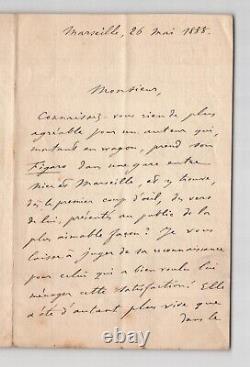 Marseille, 26 mai 1888.
Monsieur,
Connaissez-vous rien de plus
agréable pour un auteur qui,
montant en wagon, prend son
Figaro dans une gare entre
Nice et Marseille, et y trouve,
dès le premier coup d'œil, des vers
de lui, présentés au public de la
plus aimable façon? Je vous
laisse à juger de sa reconnaissance
pour celui qui a bien voulu lui
ménager cette satisfaction! Elle
a été d'autant plus vive que
dans le